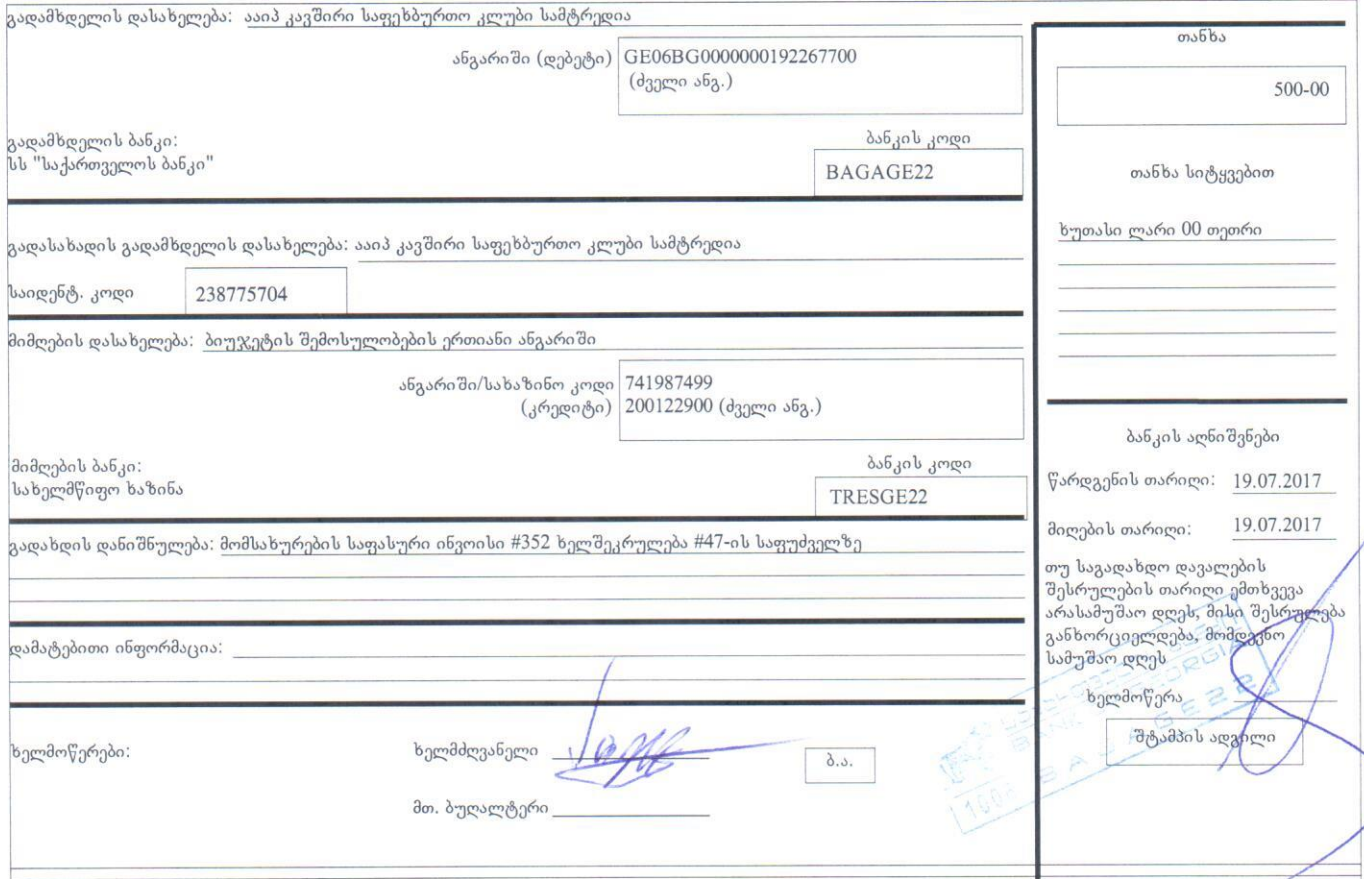 გადამხდელის დასახელება: ააიპ კავშირი საფეხბურთო კლუბი სამტრედია
ანგარიში (დებეტი) GE06BG0000000192267700
(ძველი ანგ.)
გადამხდელის ბანკი:
სს "საქართველოს ბანკი"
ბანკის კოდი
BAGAGE22
გადასახადის გადამხდელის დასახელება: ააიპ კავშირი საფეხბურთო კლუბი სამტრედია
საიდენტ. კოდი 238775704
მიმღების დასახელება: ბიუჯეტის შემოსულობების ერთიანი ანგარიში
ანგარიში/სახაზინო კოდი 741987499
(კრედიტი) 200122900 (ძველი ანგ.)
მიმღების ბანკი:
სახელმწიფო ხაზინა
ბანკის კოდი
TRESGE22
გადახდის დანიშნულება: მომსახურების საფასური ინვოისი #352 ხელშეკრულება #47-ის საფუძველზე
დამატებითი ინფორმაცია:
ხელმოწერები:
ხელმძღვანელი
ბ.ა.
მთ. ბუღალტერი
თანხა
500-00
თანხა სიტყვებით
ხუთასი ლარი 00 თეთრი
ბანკის აღნიშვნები
წარდგენის თარიღი: 19.07.2017
მიღების თარიღი: 19.07.2017
თუ საგადახდო დავალების
შესრულების თარიღი ემთხვევა
არასამუშაო დღეს, მისი შესრულება
განხორციელდება, მომდევნო
სამუშაო დღეს
ხელმოწერა
შტამპის ადგილი
BANK GEORGIA
BAGAGE22